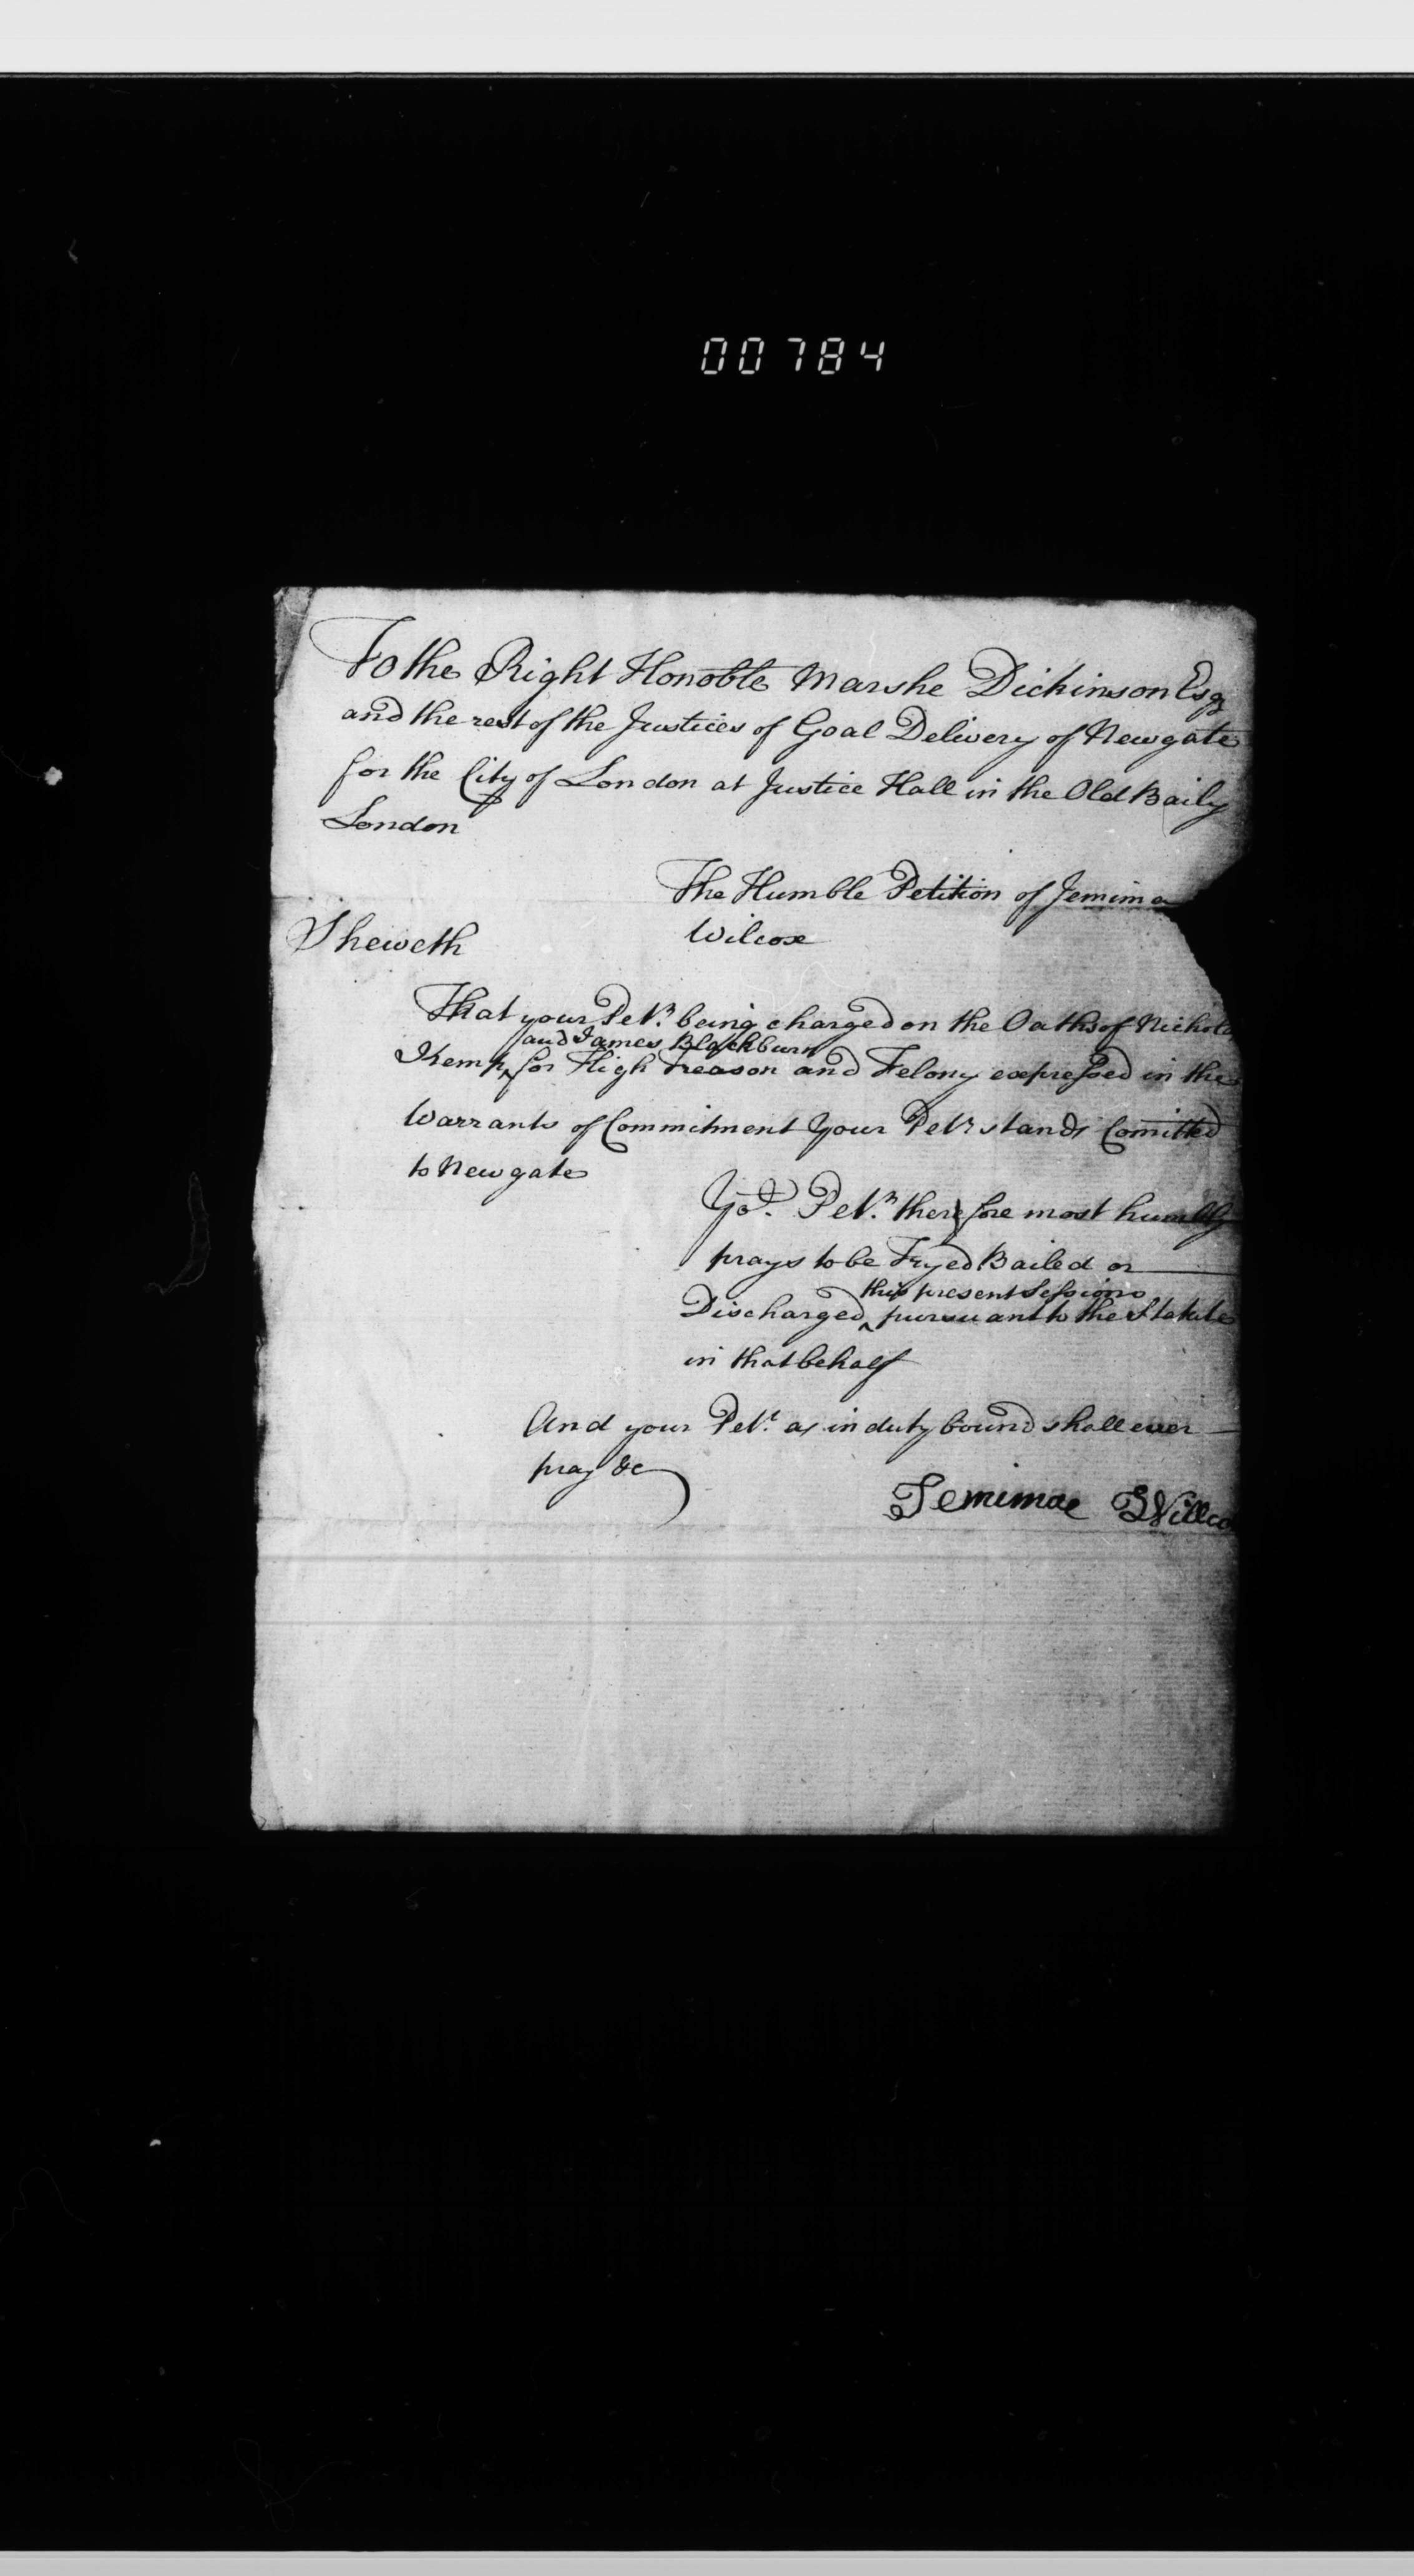 00784
To the Right Honoble Marshe Dickinson Esqr
and the rest of the Justices of Goal Delivery of Newgate
for the City of London at Justice Hall in the Old Baily
London
The Humble Petition of Jemima
Wilcox
Sheweth
That your Petr. being charged on the Oaths of Nichola
and James Blackburn
Kemp ‸ for High Treason and Felony expressed in the
Warrants of Commitment Your Petr stands Comitted
to Newgate
Yor. Petr. therefore most humbly
prays to be Tryed Bailed or
this present Sessions
Discharged ‸ pursuant to the Statute
in that behalf
And your Petr. as in duty bound shall ever
pray &c
Jemimae Willco